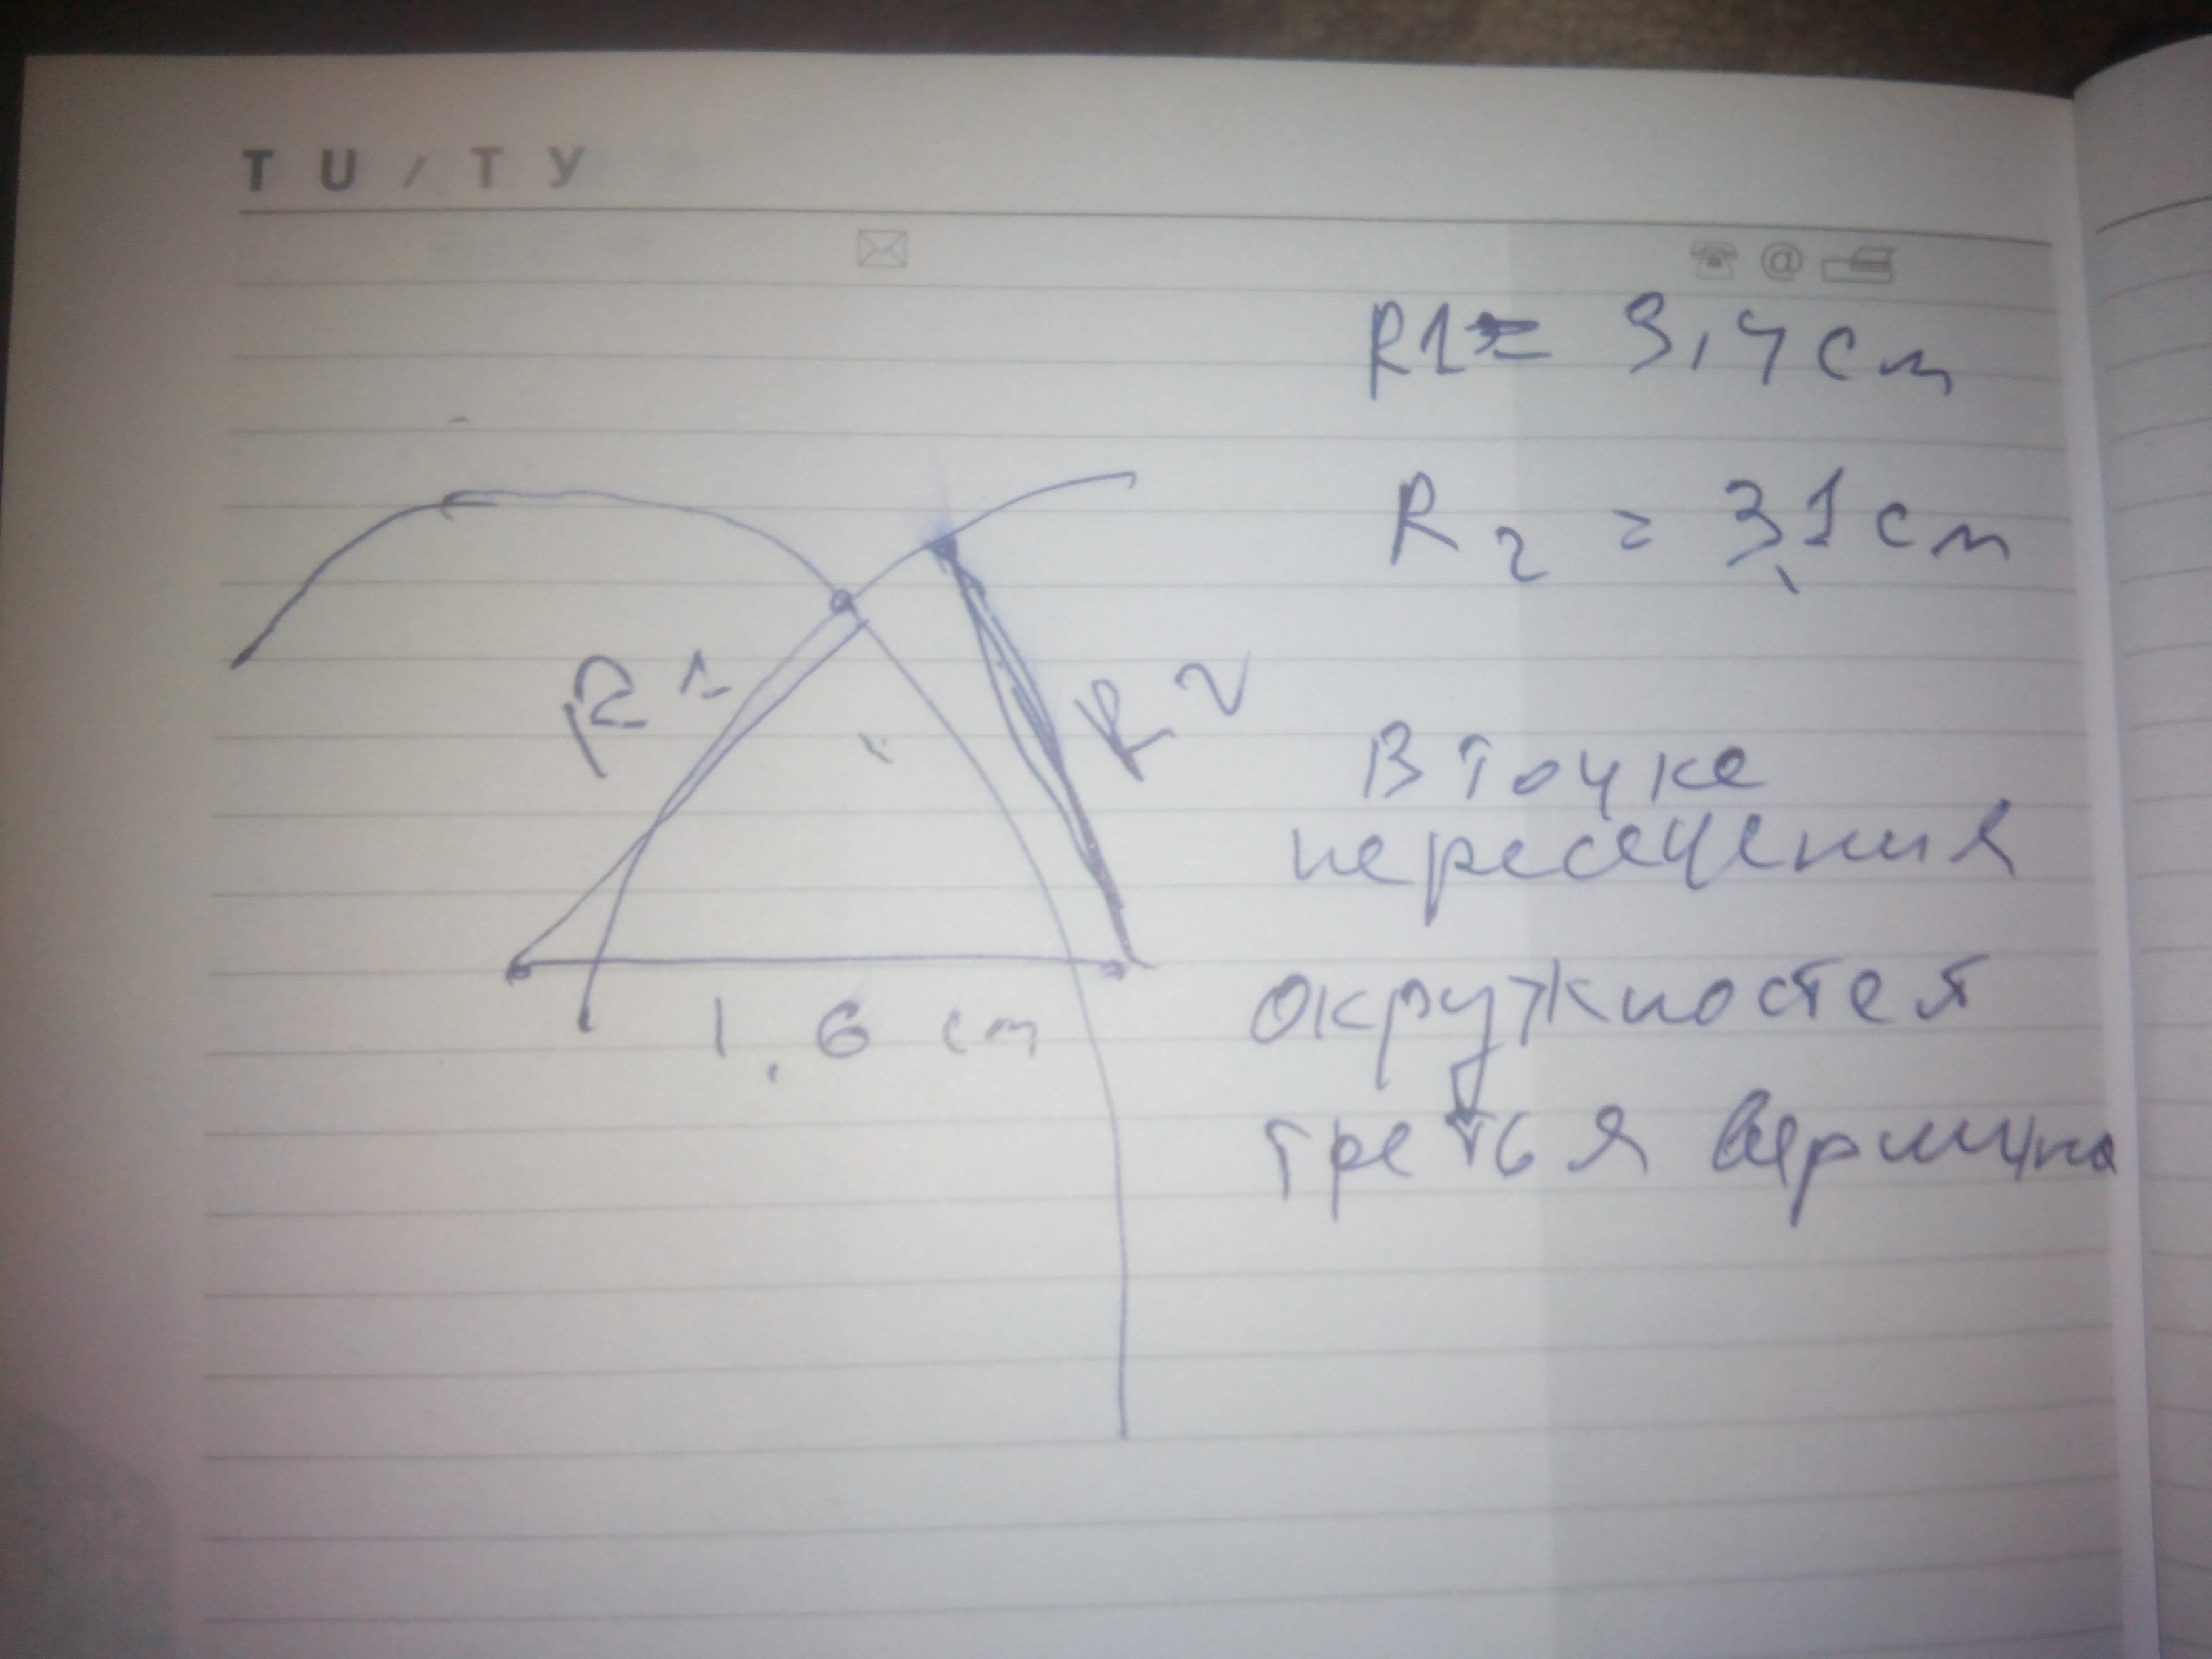 TU / ТУ
@
R1 = 3,4 см
R2 = 3,1 см
R1
R2
В точке
пересечения
1,6 см
окружностей
третья вершина